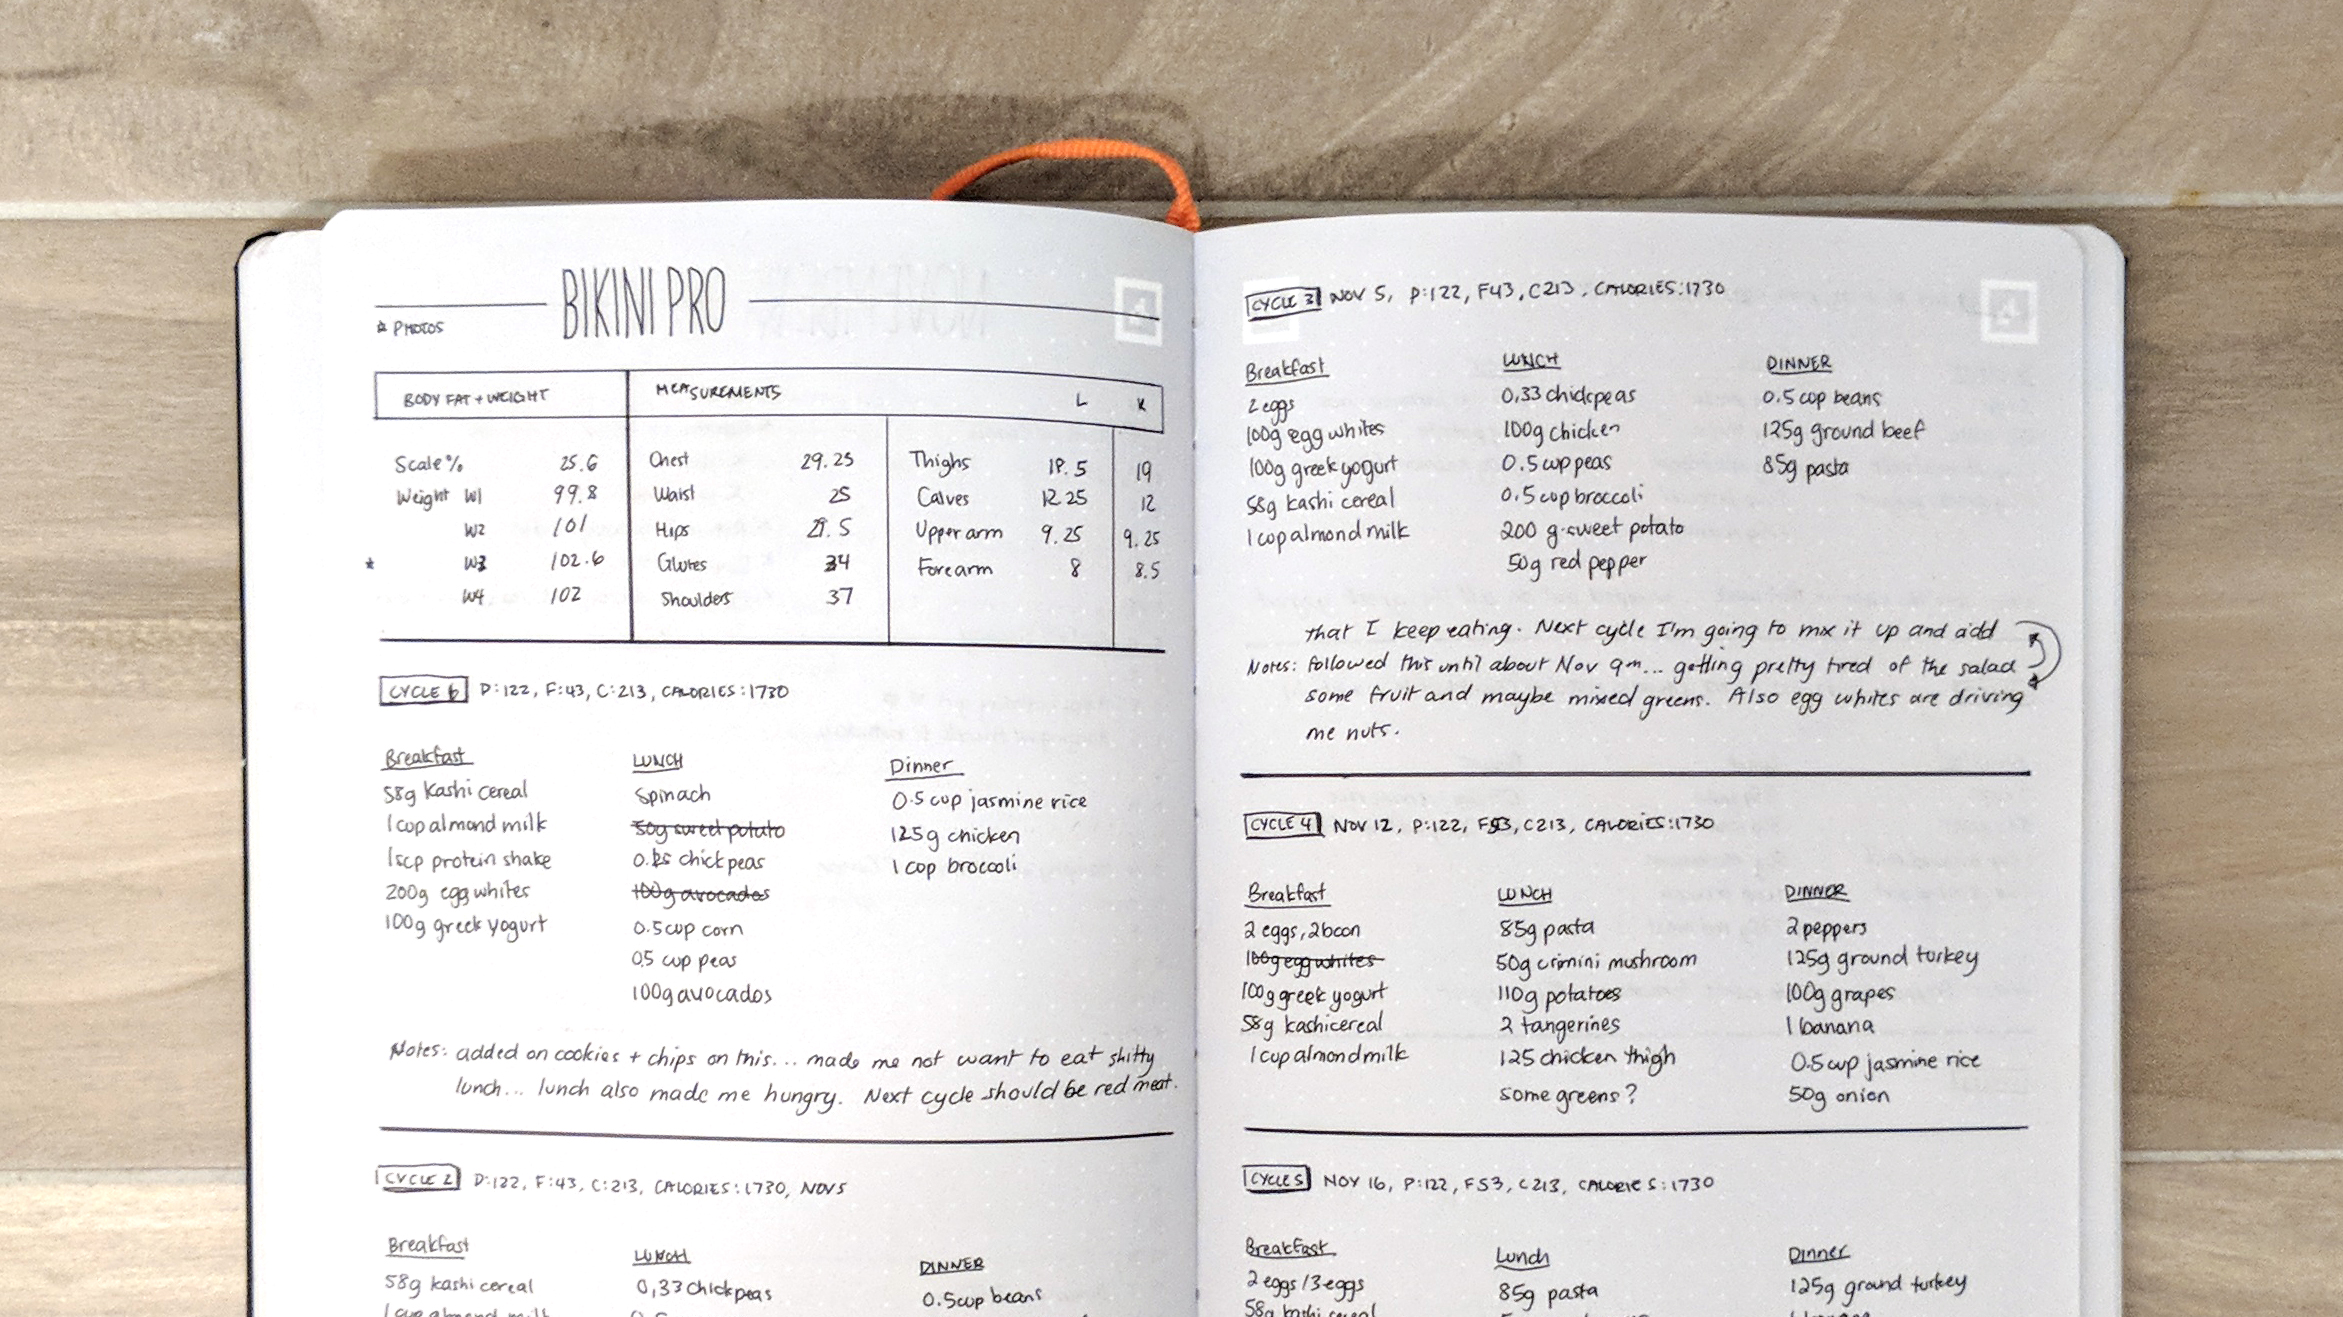 BIKINI PRO
PHOTOS
BODY FAT + WEIGHT
Scale % 25.6
Weight W1 99.8
W2 101
W3 102.6
W4 102
MEASUREMENTS L
Chest 29.25
Waist 25
Hips 29.5
Glutes 34
Shoulders 37
Thighs 18.5 19
Calves 12.25 12
Upper arm 9.25 9.25
Forearm 8 8.5
CYCLE 6 P:122, F:43, C:213, CALORIES:1730
Breakfast
58g Kashi cereal
1 cup almond milk
1 scp protein shake
200g egg whites
100g greek yogurt
LUNCH
Spinach
50g sweet potato
chickpeas
100g avocados
0.5 cup corn
0.5 cup peas
100g avocados
Dinner
0.5 cup jasmine rice
125g chicken
1 cup broccoli
Notes: added on cookies + chips on this... made me not want to eat shitty
lunch... lunch also made me hungry. Next cycle should be red meat.
CYCLE 2 P:122, F:43, C:213, CALORIES:1730, NOV 5
Breakfast
58g kashi cereal
1 cup almond milk
LUNCH
0,33 chickpeas
DINNER
0.5cup beans
CYCLE 3 NOV 5, P:122, F43, C213, CALORIES:1730
Breakfast
2 eggs
100g egg whites
100g greek yogurt
58g kashi cereal
1 cup almond milk
LUNCH
0.33 chickpeas
100g chicken
0.5 cup peas
0.5 cup broccoli
200 g sweet potato
50g red pepper
DINNER
0.5 cup beans
125g ground beef
85g pasta
that I keep eating. Next cycle I'm going to mix it up and add
Notes: followed this until about Nov 9th... getting pretty tired of the salad
some fruit and maybe mixed greens. Also egg whites are driving
me nuts.
CYCLE 4 NOV 12, P:122, F53, C213, CALORIES:1730
Breakfast
2 eggs, 2 bcon
100g egg whites
100g greek yogurt
58g kashi cereal
1 cup almond milk
LUNCH
85g pasta
50g crimini mushroom
110g potatoes
2 tangerines
125 chicken thigh
some greens?
DINNER
2 peppers
125g ground turkey
100g grapes
1 banana
0.5 cup jasmine rice
50g onion
CYCLE 5 NOV 16, P:122, F53, C213, CALORIES:1730
Breakfast
2 eggs / 3 eggs
58g kashi cereal
Lunch
85g pasta
Dinner
125g ground turkey